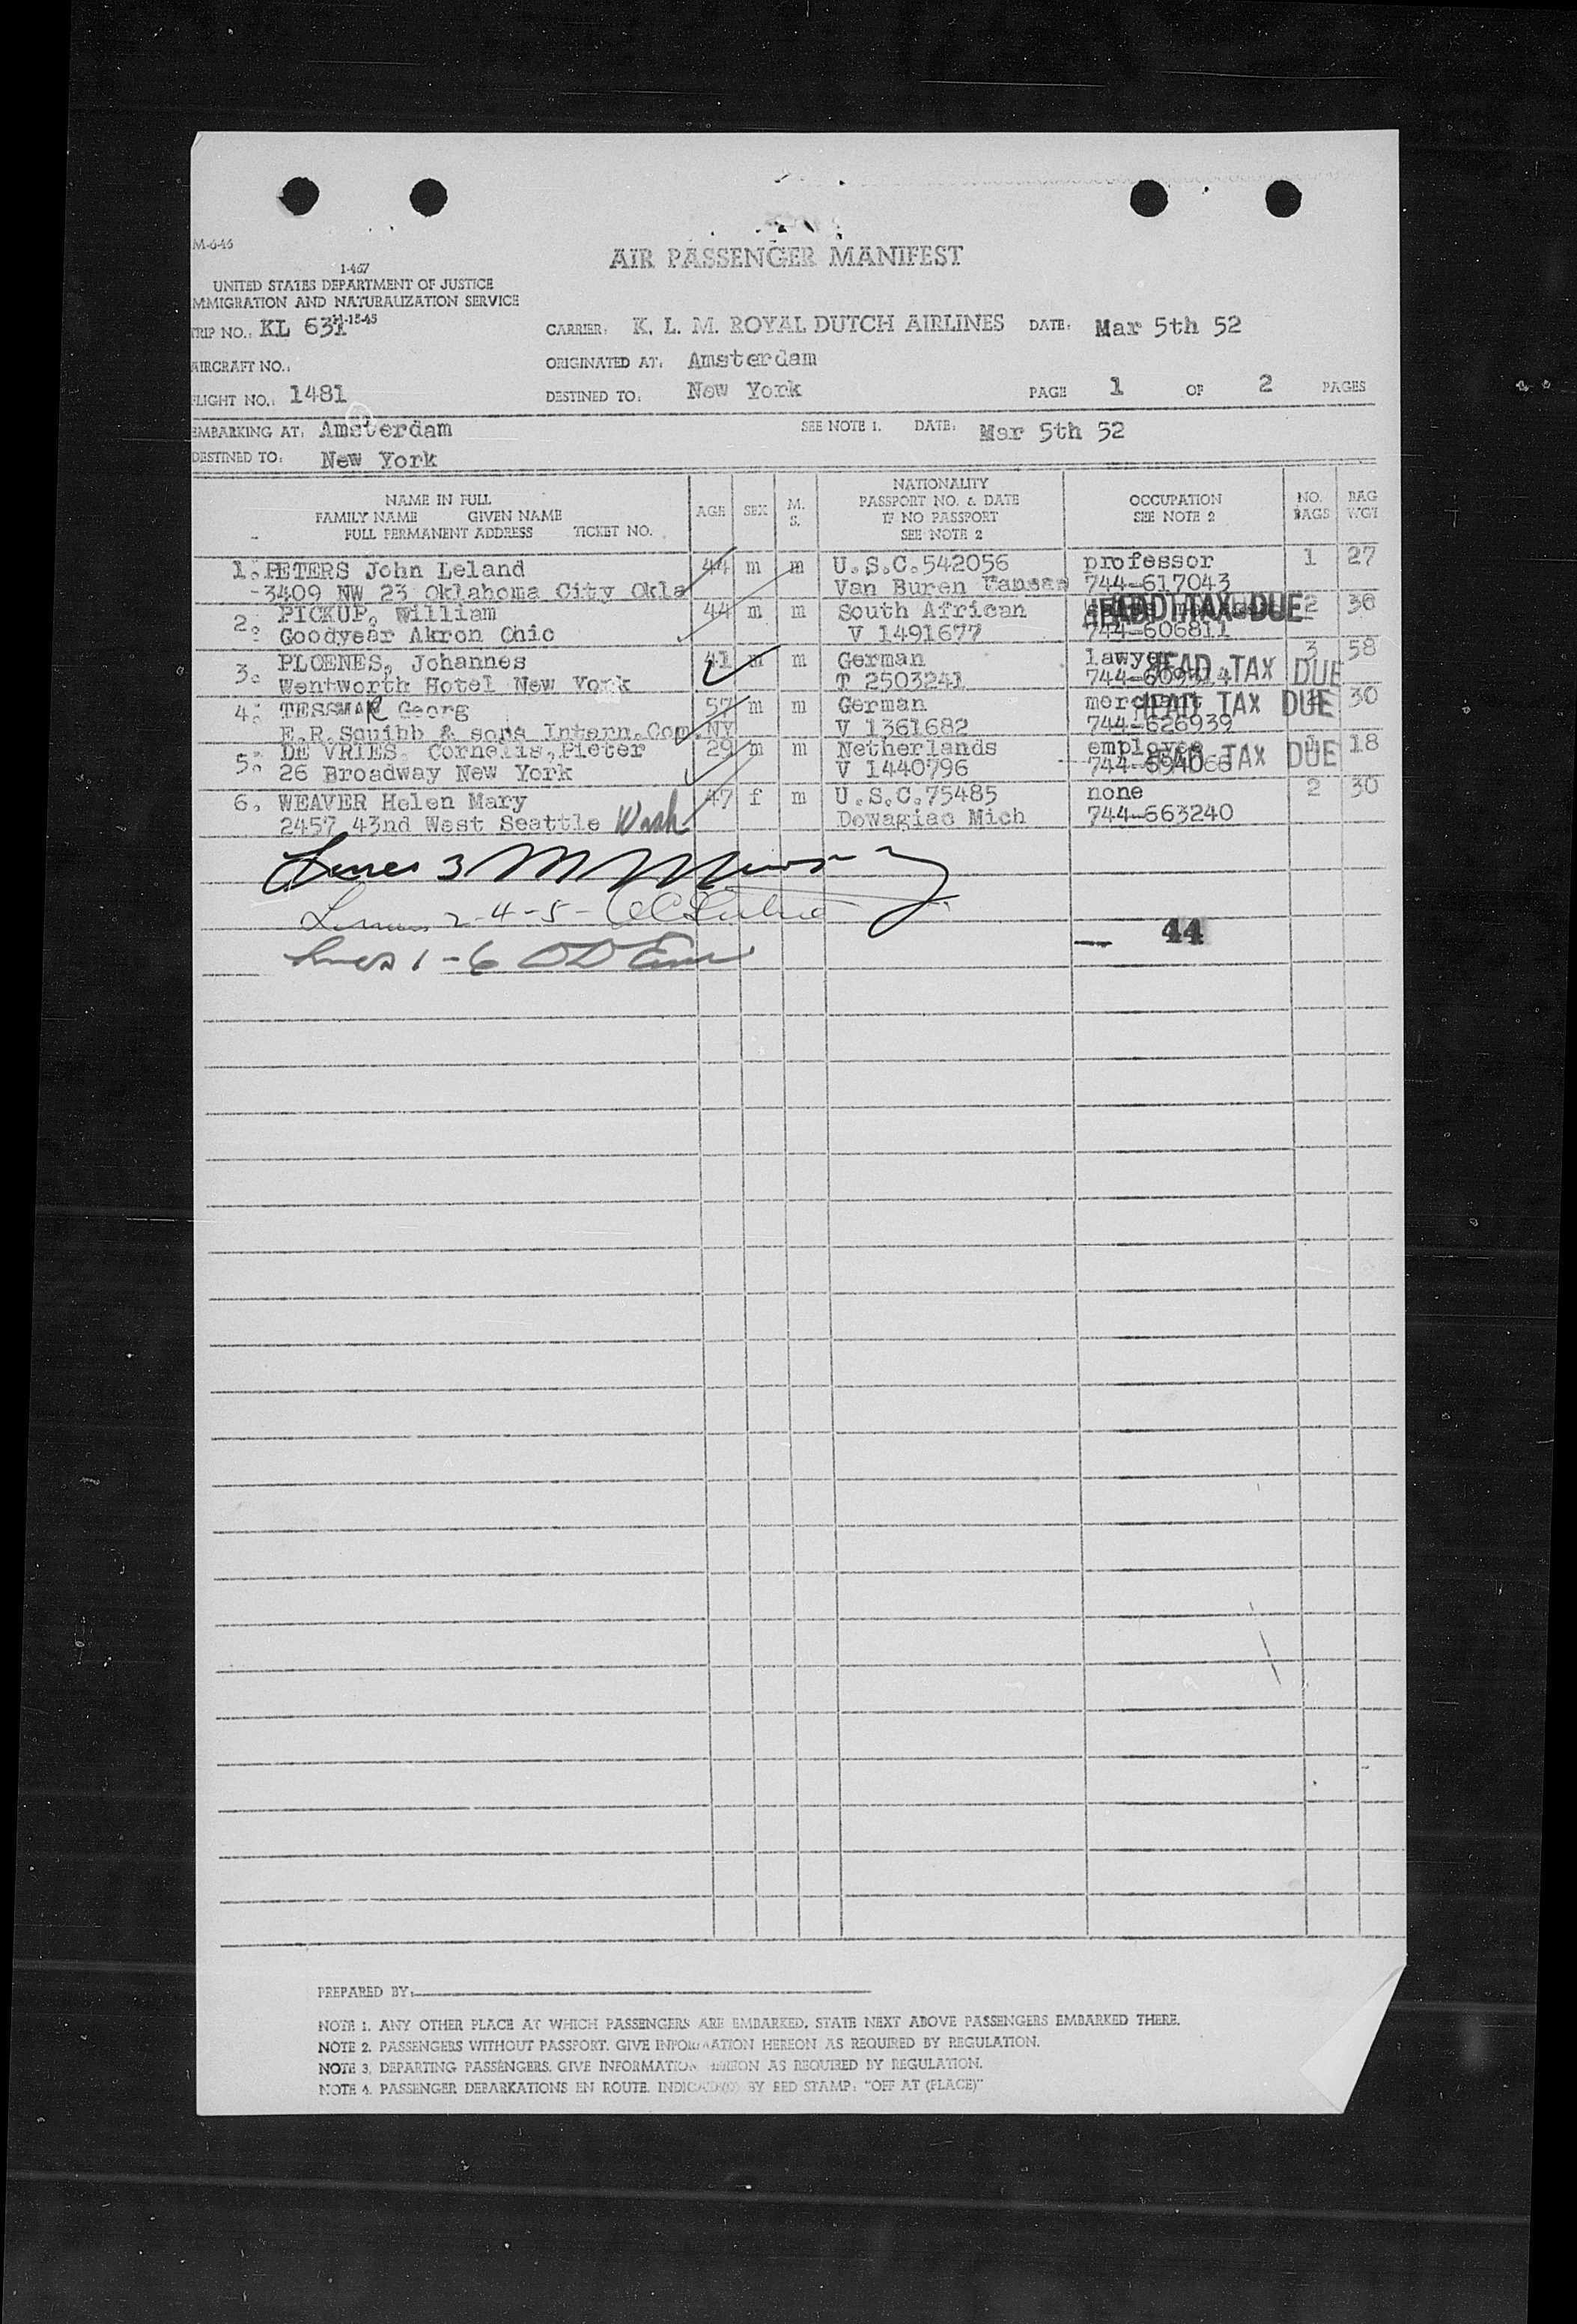 M-6-46
AIR PASSENGER MANIFEST
1-467
UNITED STATES DEPARTMENT OF JUSTICE
MMIGRATION AND NATURALIZATION SERVICE
11-15-45
RIP NO.: KL 631 CARRIER: K. L. M. ROYAL DUTCH AIRLINES DATE: Mar 5th 52
AIRCRAFT NO.: ORIGINATED AT: Amsterdam
LIGHT NO.: 1481 DESTINED TO: New York PAGE 1 OF 2 PAGES
EMBARKING AT: Amsterdam SEE NOTE 1. DATE: Mar 5th 52
DESTINED TO: New York
NAME IN FULL
FAMILY NAME GIVEN NAME
FULL PERMANENT ADDRESS TICKET NO. AGE SEX M. S. NATIONALITY PASSPORT NO. & DATE IF NO PASSPORT SEE NOTE 2 OCCUPATION SEE NOTE 2 NO. BAGS BAG WGT
1. PETERS John Leland 44 m m U.S.C.542056 professor 1 27
3409 NW 23 Oklahoma City Okla Van Buren 744-617043
2. PICKUP, William 44 m m South African 2 36
HEAD TAX DUE
Goodyear Akron Ohio V 1491677 744-606811
3. PLOENES, Johannes 41 m m German lawyer 3 58
HEAD TAX DUE
Wentworth Hotel New York T 2503241
4. TESSMAR Georg 57 m m German merchant 30
HEAD TAX DUE
E.R.Squibb & sons Intern.Com NY V 1361682 744-626939
5. DE VRIES, Cornelis,Pieter 29 m m Netherlands employee 1 18
HEAD TAX DUE
26 Broadway New York V 1440796
6. WEAVER Helen Mary 47 f m U.S.C.75485 none 2 30
2457 43nd West Seattle Wash Dowagiac Mich 744-663240
Lines 3
Lines 2-4-5-
44
Lines 1-6
PREPARED BY:
NOTE 1. ANY OTHER PLACE AT WHICH PASSENGERS ARE EMBARKED, STATE NEXT ABOVE PASSENGERS EMBARKED THERE.
NOTE 2. PASSENGERS WITHOUT PASSPORT. GIVE INFORMATION HEREON AS REQUIRED BY REGULATION.
NOTE 3. DEPARTING PASSENGERS. GIVE INFORMATION HEREON AS REQUIRED BY REGULATION.
NOTE 4. PASSENGER DEBARKATIONS EN ROUTE. BY RED STAMP: "OFF AT (PLACE)"